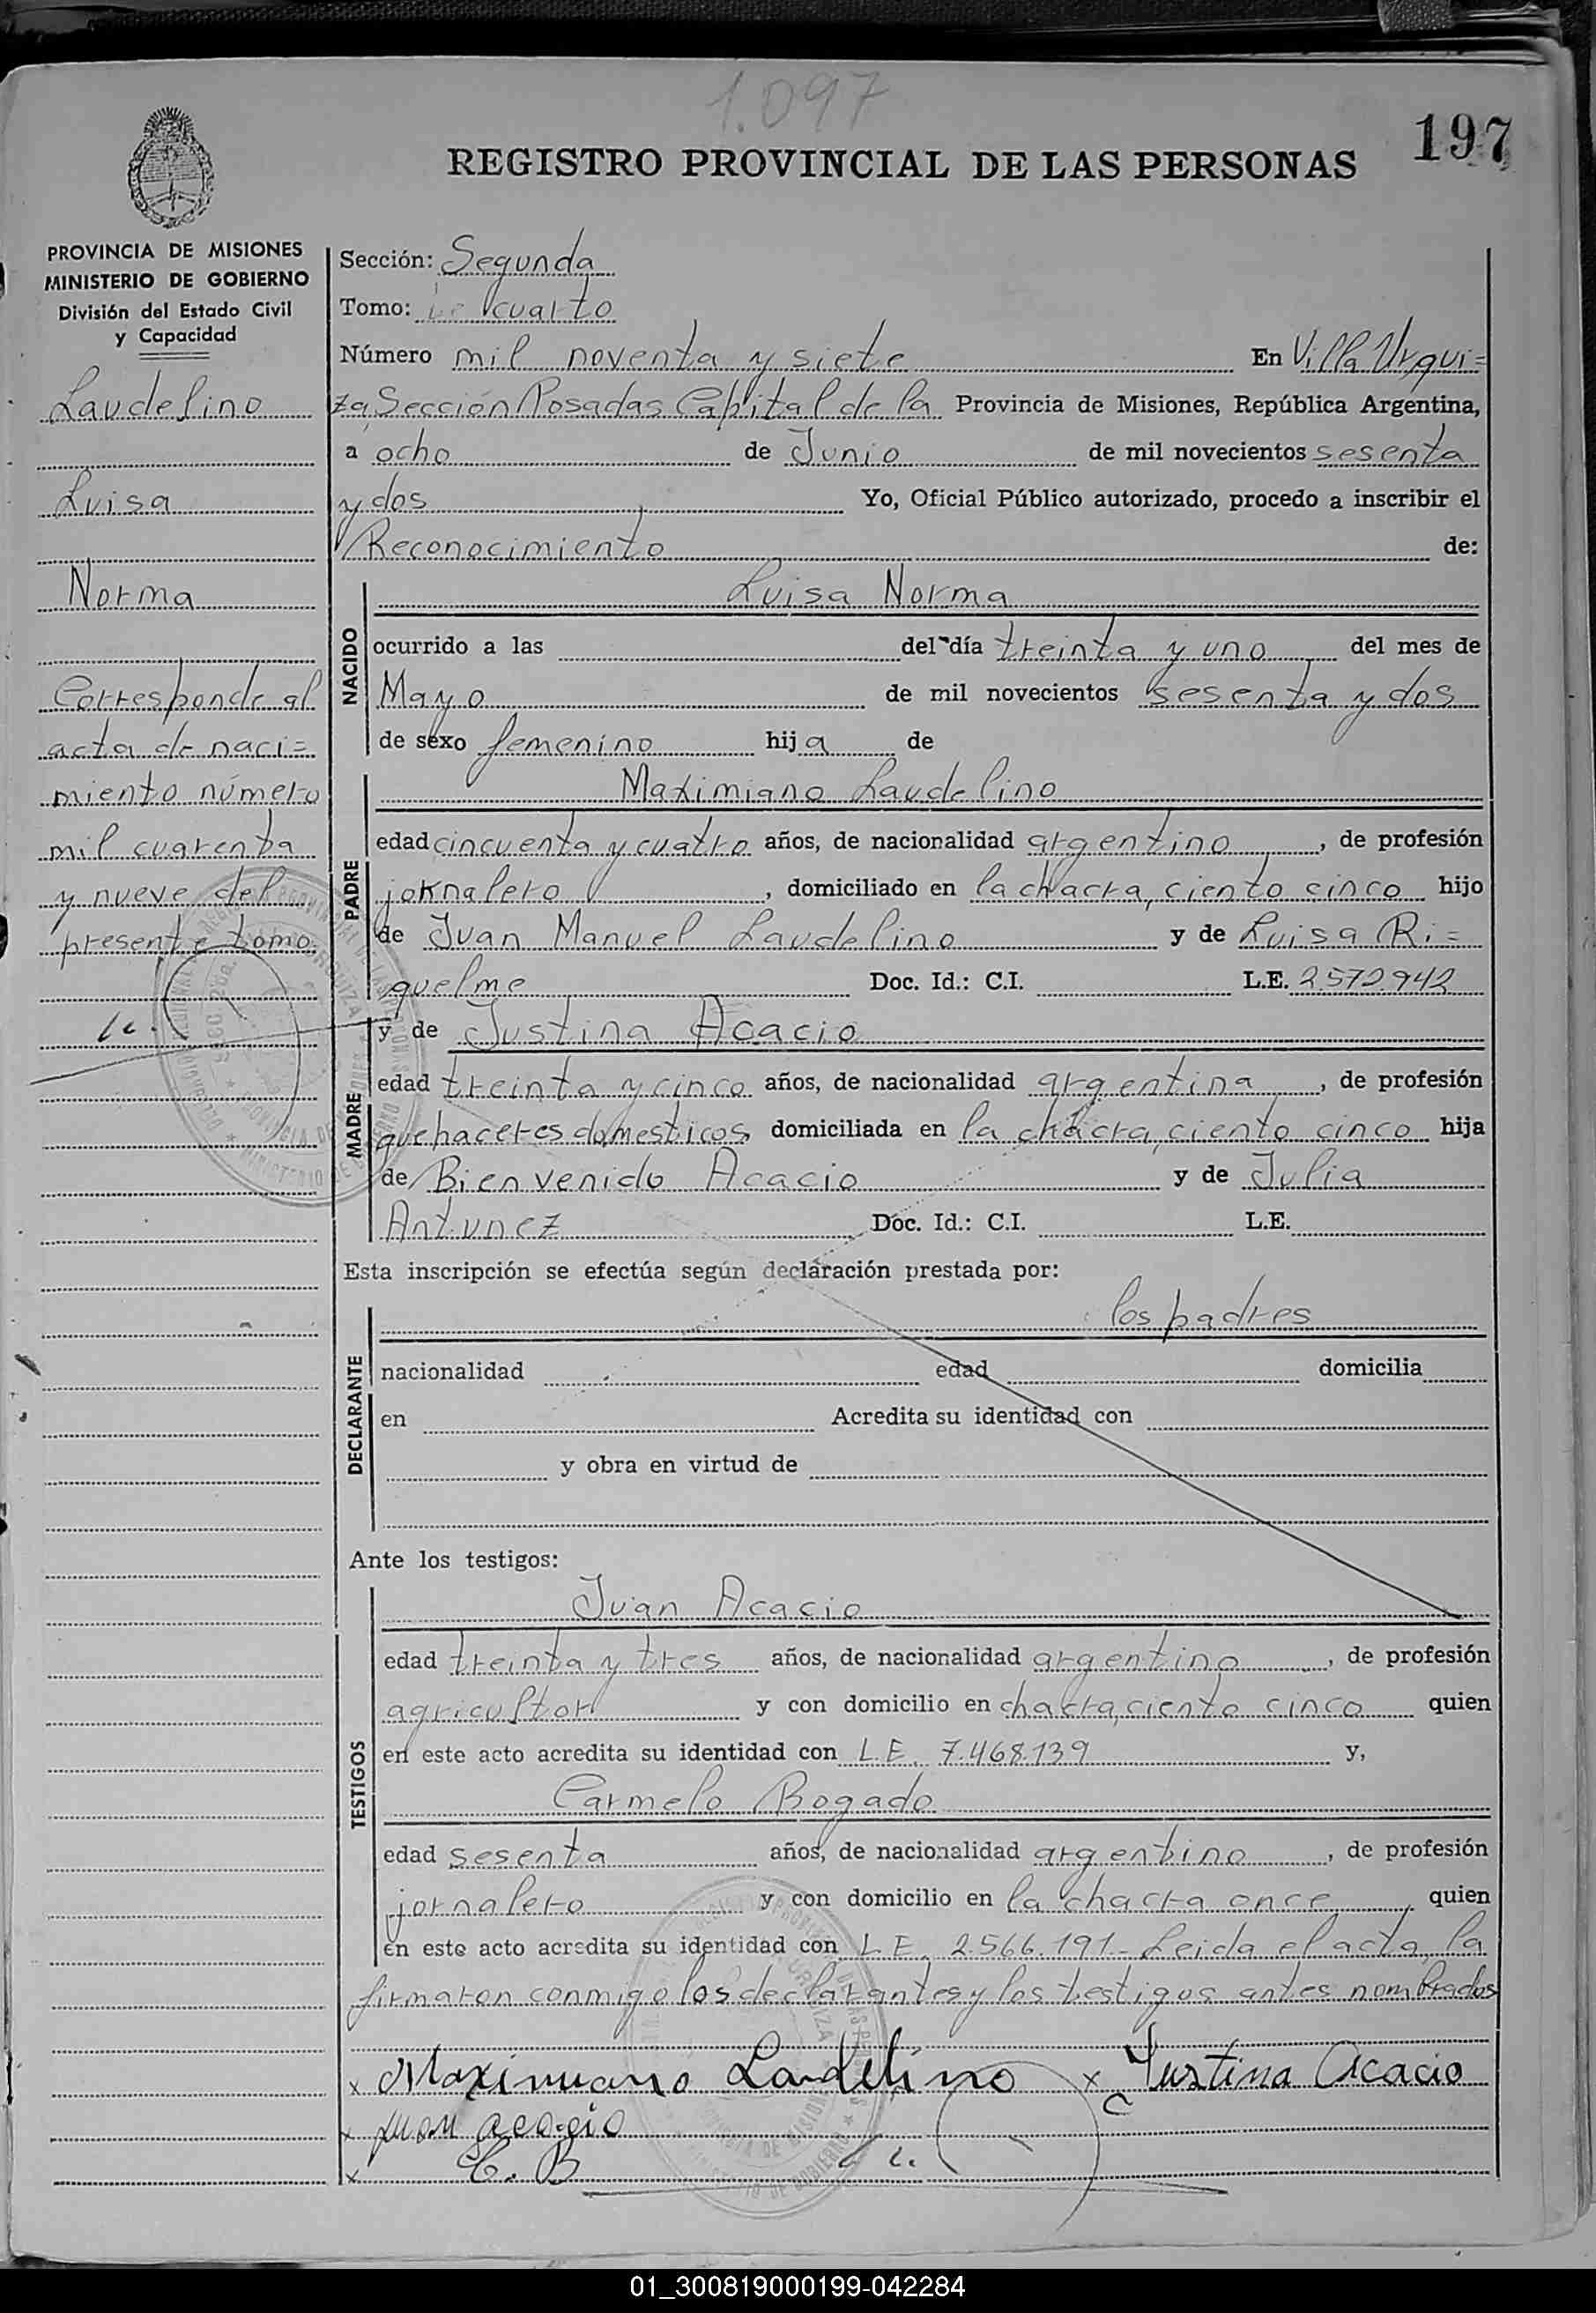 1.097
197
REGISTRO PROVINCIAL DE LAS PERSONAS
PROVINCIA DE MISIONES
MINISTERIO DE GOBIERNO
División del Estado Civil
y Capacidad
Laudelino
Luisa
Norma
Corresponde al
acta de naci=
miento número
mil cuarenta
y nueve del
presente tomo
Sección: Segunda
Tomo: cuarto
Número mil noventa y siete En Villa Urqui=
za, Sección Posadas Capital de la Provincia de Misiones, República Argentina,
a ocho de Junio de mil novecientos sesenta
y dos Yo, Oficial Público autorizado, procedo a inscribir el
Reconocimiento de:
NACIDO
Luisa Norma
ocurrido a las del día treinta y uno del mes de
Mayo de mil novecientos sesenta y dos
de sexo femenino hija de
PADRE
Maximiano Laudelino
edad cincuenta y cuatro años, de nacionalidad argentino, de profesión
jornalero, domiciliado en la chacra, ciento cinco hijo
de Juan Manuel Laudelino y de Luisa Ri=
quelme Doc. Id.: C.I. L.E. 2.572.942
MADRE
y de Justina Acacio
edad treinta y cinco años, de nacionalidad argentina, de profesión
quehaceres domesticos, domiciliada en la chacra, ciento cinco hija
de Bienvenido Acacio y de Julia
Antunez Doc. Id.: C.I. L.E.
Esta inscripción se efectúa según declaración prestada por:
DECLARANTE
los padres
nacionalidad edad domicilia
en Acredita su identidad con
y obra en virtud de
Ante los testigos:
TESTIGOS
Juan Acacio
edad treinta y tres años, de nacionalidad argentino, de profesión
agricultor y con domicilio en chacra, ciento cinco quien
en este acto acredita su identidad con L.E. 7.468.139 y,
Carmelo Bogado
edad sesenta años, de nacionalidad argentino, de profesión
jornalero y con domicilio en la chacra once quien
en este acto acredita su identidad con L.E. 2.566.191.- Leida el acta, la
firmaron conmigo los declarantes y los testigos antes nombrados
x Maximiano Laudelino x Justina Acacio
x Juan Acacio
x C. B
01_300819000199-042284